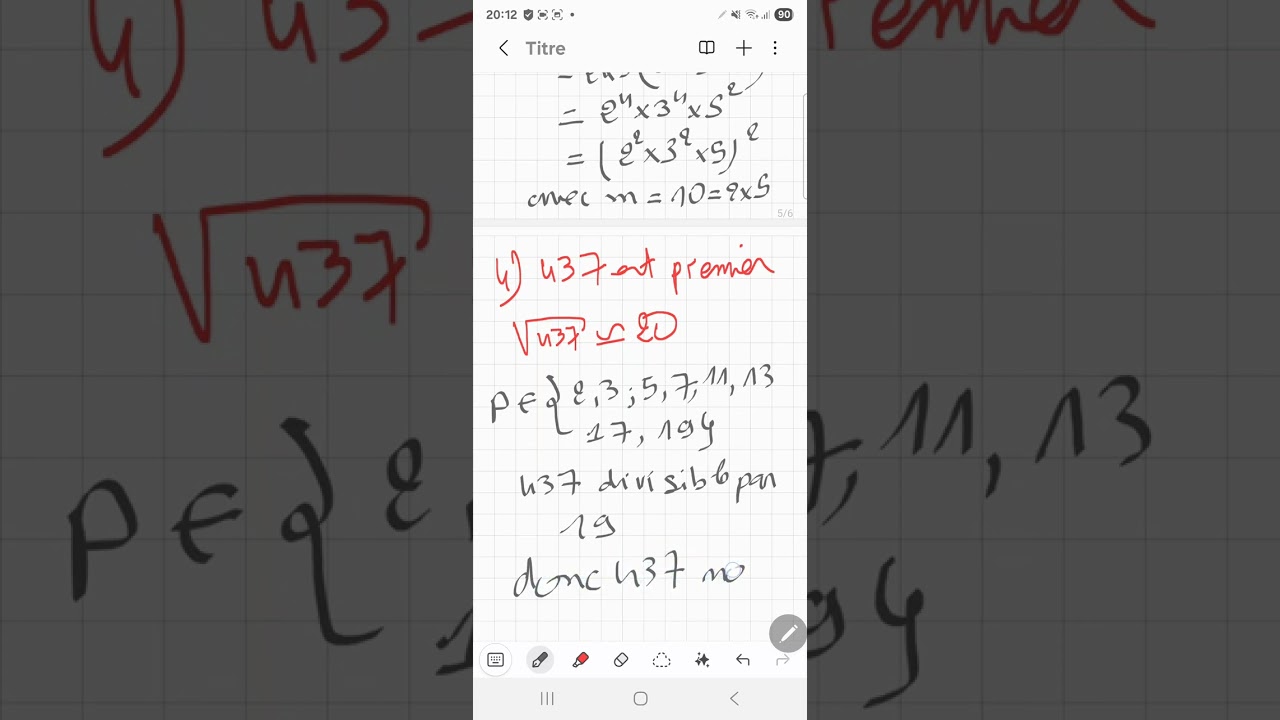 20:12 90
Titre
= 2⁴×3⁴×5²
= (2²×3²×5)²
avec m = 10 = 2×5
5/6
4) 437 est premier
√437 ≃ 20
P ∈ { 2, 3 ; 5, 7, 11, 13
17, 19 }
437 divisible par
19
donc 437 no